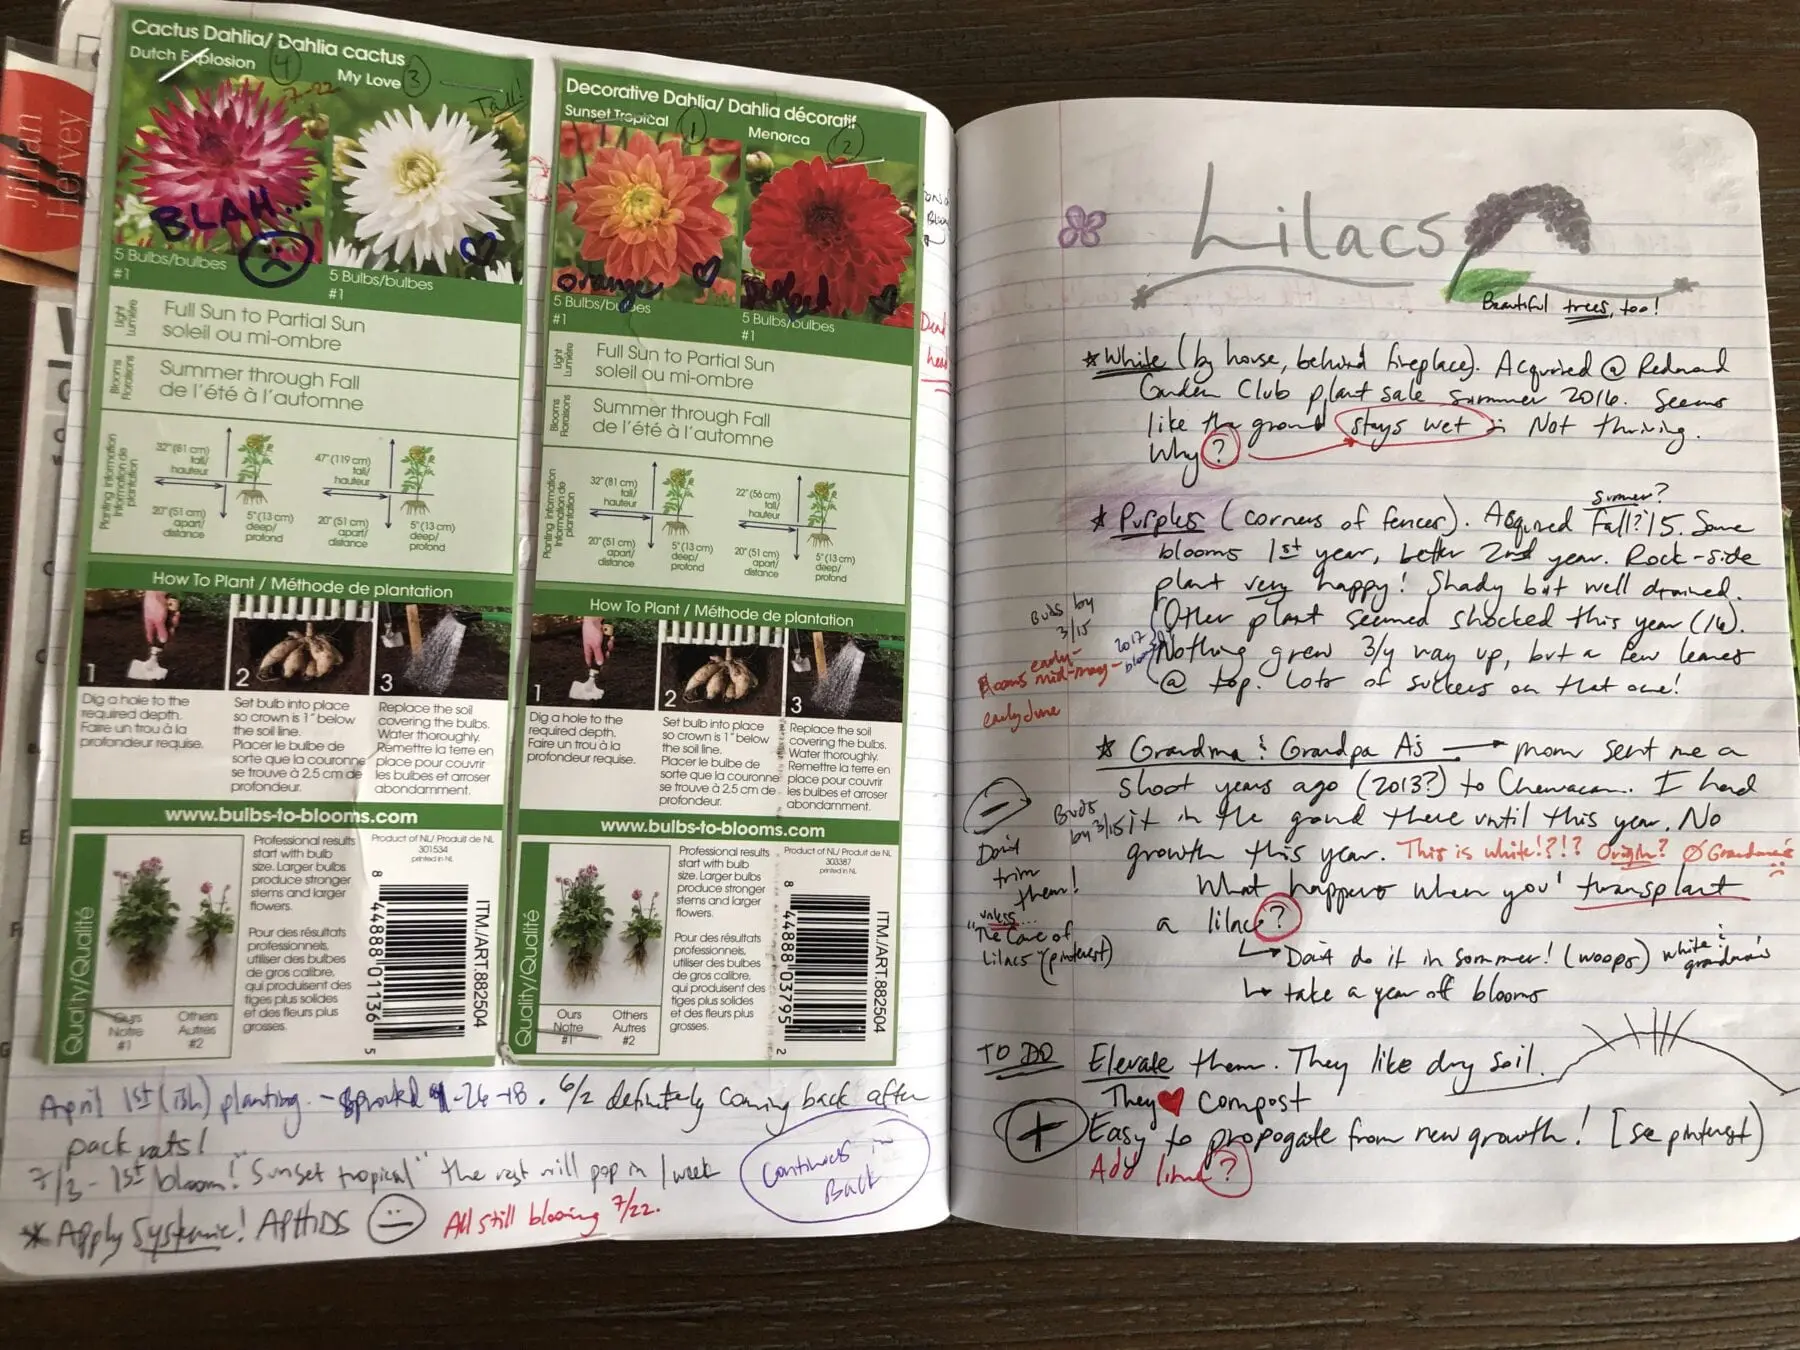 Jillian
Hervey
Cactus Dahlia/ Dahlia cactus
Dutch Explosion
4
7-22
My Love
3
Tall!
BLAH...
5 Bulbs/bulbes
#1
5 Bulbs/bulbes
#1
Light
Lumière
Full Sun to Partial Sun
soleil ou mi-ombre
Blooms
Floraisons
Summer through Fall
de l'été à l'automne
Planting information
Information de
plantation
32" (81 cm)
tall/
hauteur
20" (51 cm)
apart/
distance
5" (13 cm)
deep/
profond
47" (119 cm)
tall/
hauteur
20" (51 cm)
apart/
distance
5" (13 cm)
deep/
profond
How To Plant / Méthode de plantation
1
2
3
Dig a hole to the
required depth.
Faire un trou à la
profondeur requise.
Set bulb into place
so crown is 1" below
the soil line.
Placer le bulbe de
sorte que la couronne
se trouve à 2.5 cm de
profondeur.
Replace the soil
covering the bulbs.
Water thoroughly.
Remettre la terre en
place pour couvrir
les bulbes et arroser
abondamment.
www.bulbs-to-blooms.com
Quality/Qualité
Ours
Notre
#1
Others
Autres
#2
Professional results
start with bulb
size. Larger bulbs
produce stronger
stems and larger
flowers.
Pour des résultats
professionnels,
utiliser des bulbes
de gros calibre,
qui produisent des
tiges plus solides
et des fleurs plus
grosses.
Product of NL/ Produit de NL
301534
printed in NL
8 44888 01136 5
ITM./ART.882504
Decorative Dahlia/ Dahlia décoratif
Sunset Tropical
1
Menorca
2
oranges
5 Bulbs/bulbes
#1
5 Bulbs/bulbes
#1
Light
Lumière
Full Sun to Partial Sun
soleil ou mi-ombre
Blooms
Floraisons
Summer through Fall
de l'été à l'automne
Planting information
Information de
plantation
32" (81 cm)
tall/
hauteur
20" (51 cm)
apart/
distance
5" (13 cm)
deep/
profond
22" (56 cm)
tall/
hauteur
20" (51 cm)
apart/
distance
5" (13 cm)
deep/
profond
How To Plant / Méthode de plantation
1
2
3
Dig a hole to the
required depth.
Faire un trou à la
profondeur requise.
Set bulb into place
so crown is 1" below
the soil line.
Placer le bulbe de
sorte que la couronne
se trouve à 2.5 cm de
profondeur.
Replace the soil
covering the bulbs.
Water thoroughly.
Remettre la terre en
place pour couvrir
les bulbes et arroser
abondamment.
www.bulbs-to-blooms.com
Quality/Qualité
Ours
Notre
#1
Others
Autres
#2
Professional results
start with bulb
size. Larger bulbs
produce stronger
stems and larger
flowers.
Pour des résultats
professionnels,
utiliser des bulbes
de gros calibre,
qui produisent des
tiges plus solides
et des fleurs plus
grosses.
Product of NL/ Produit de NL
303387
printed in NL
8 44888 03795 2
ITM./ART.882504
April 1st (ish) planting. - Sprouted 4-26-18. 6/2 definitely coming back after
pack rats!
7/3 - 1st bloom! "Sunset tropical" the rest will pop in 1 week
Continues in
Back
* Apply Systemic! APHIDS
All still blooming 7/22.
Lilacs
Beautiful trees, too!
* White (by house, behind fireplace). Acquired @ Redmond
Garden Club plant sale summer 2016. Seems
like the ground stays wet & Not thriving.
Why?
summer?
* Purples (corners of fences). Acquired Fall? '15. Some
blooms 1st year, better 2nd year. Rock-side
plant very happy! Shady but well drained.
Other plant seemed shocked this year (16).
Nothing grew 3/4 way up, but a few leaves
@ top. Lots of suckers on that one!
Buds by
3/15
early-
Blooms mid-may-
early June
2017
bloomed
* Grandma & Grandpa A's → mom sent me a
shoot years ago (2013?) to Chewacan. I had
it in the ground there until this year. No
growth this year. This is white!?!? Origin? Ø Grandma's
Buds
by 3/15
What happens when you transplant
a lilac?
↳ Don't do it in summer! (woops) white &
grandma's
↳ take a year off blooms
−
Don't
trim
them!
unless...
"The Care of
Lilacs" (pinterest)
TO DO
Elevate them. They like dry soil.
They ♥ compost
+
Easy to propogate from new growth! [se pinterest)
Add lime?